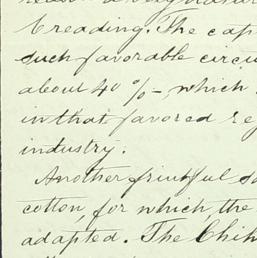 breading. The cap
such favorable circu
about 40 %-, which
in that favored re
industry.
Another fruitful s
cotton, for which, the
adapted. The Chih